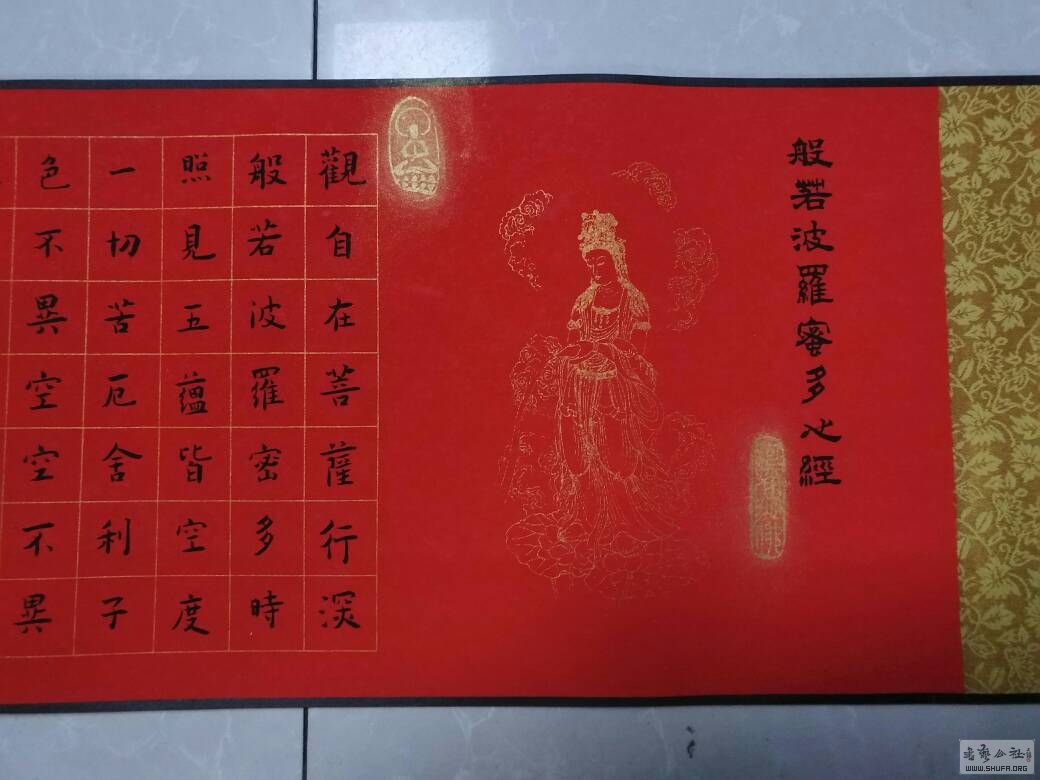 般若波羅蜜多心經
觀自在菩薩行深
般若波羅密多時
照見五蘊皆空度
一切苦厄舍利子
色不異空空不異
WWW.SHUFA.ORG